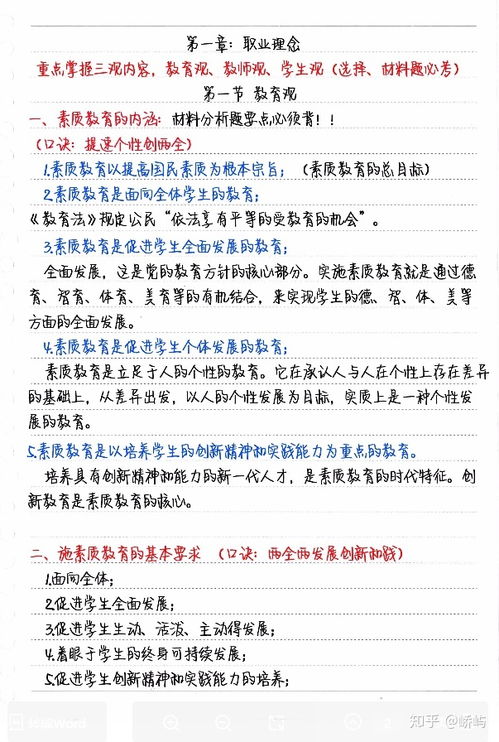 第一章：职业理念
重点掌握三观内容，教育观、教师观、学生观（选择、材料题必考）
第一节 教育观
一、素质教育的内涵：材料分析题要点必须背！！
（口诀：提速个性创两全）
1.素质教育以提高国民素质为根本宗旨；（素质教育的总目标）
2.素质教育是面向全体学生的教育；
《教育法》规定公民“依法享有平等的受教育的机会”。
3.素质教育是促进学生全面发展的教育；
全面发展，这是党的教育方针的核心部分。实施素质教育就是通过德
育、智育、体育、美育等的有机结合，来实现学生的德、智、体、美等
方面的全面发展。
4.素质教育是促进学生个体发展的教育；
素质教育是立足于人的个性的教育。它在承认人与人在个性上存在差异
的基础上，从差异出发，以人的个性发展为目标，实质上是一种个性发
展的教育。
5.素质教育是以培养学生的创新精神和实践能力为重点的教育。
培养具有创新精神和能力的新一代人才，是素质教育的时代特征。创
新教育是素质教育的核心。
二、施素质教育的基本要求（口诀：两全两发展创新和践）
1.面向全体；
2.促进学生全面发展；
3.促进学生生动、活泼、主动得发展；
4.着眼于学生的终身可持续发展；
5.促进学生创新精神和实践能力的培养；
转成Word
2
知乎 @峤屿